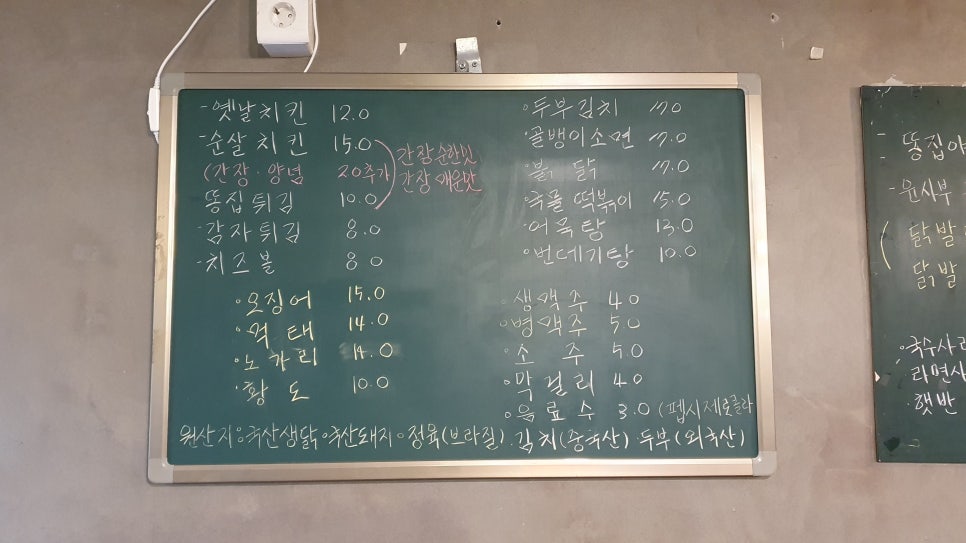 -옛날치킨 12.0
-순살치킨 15.0
(간장·양념 20추가
간장순한맛
간장 매운맛
똥집튀김 10.0
-감자튀김 8.0
-치즈볼 8.0
·오징어 15.0
·먹태 14.0
·노가리 14.0
·황도 10.0
·두부김치 17.0
·골뱅이소면 17.0
·불닭 17.0
·국물떡볶이 15.0
·어묵탕 13.0
·번데기탕 10.0
·생맥주 4.0
·병맥주 5.0
·소주 5.0
·막걸리 4.0
·음료수 3.0 (펩시제로콜라
원산지:국산생닭·국산돼지·정육(브라질)·김치(중국산)·두부(외국산)
- 똥집야
-윤사부
(닭발
닭발
·국수사리
라면사
·햇반